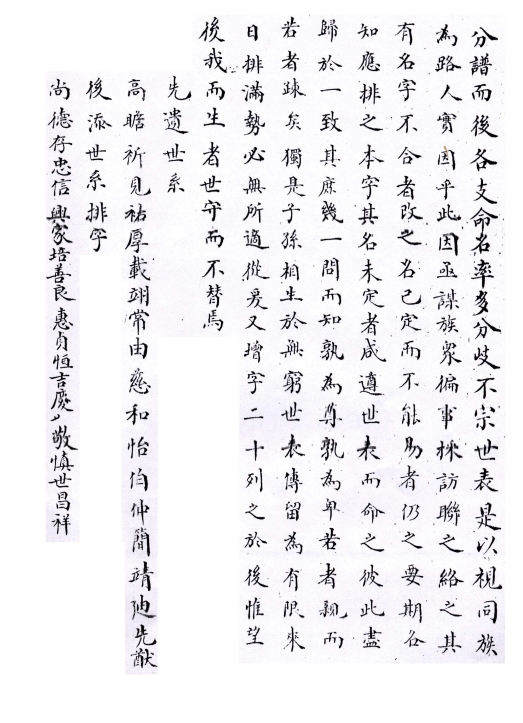 分譜而後各支命名率多分歧不宗世表是以視同族
為路人實因乎此因亟謀族眾偏事採訪聯之絡之其
有名字不合者改之名已定而不能易者仍之要期各
知應排之本字其名未定者咸遵世表而命之彼此盡
歸於一致其庶幾一問而知孰為尊孰為卑若者親而
若者踈矣獨是子孫相生於無窮世表傳留為有限來
日排滿勢必無所適從爰又增字二十列之於後惟望
後我而生者世守而不替焉
先遺世系
高瞻祈見祜厚載翊常由慈和怡伯仲簡靖迪先猷
後添世系排字
尚德存忠信興家培善良惠貞恒吉慶敬慎世昌祥